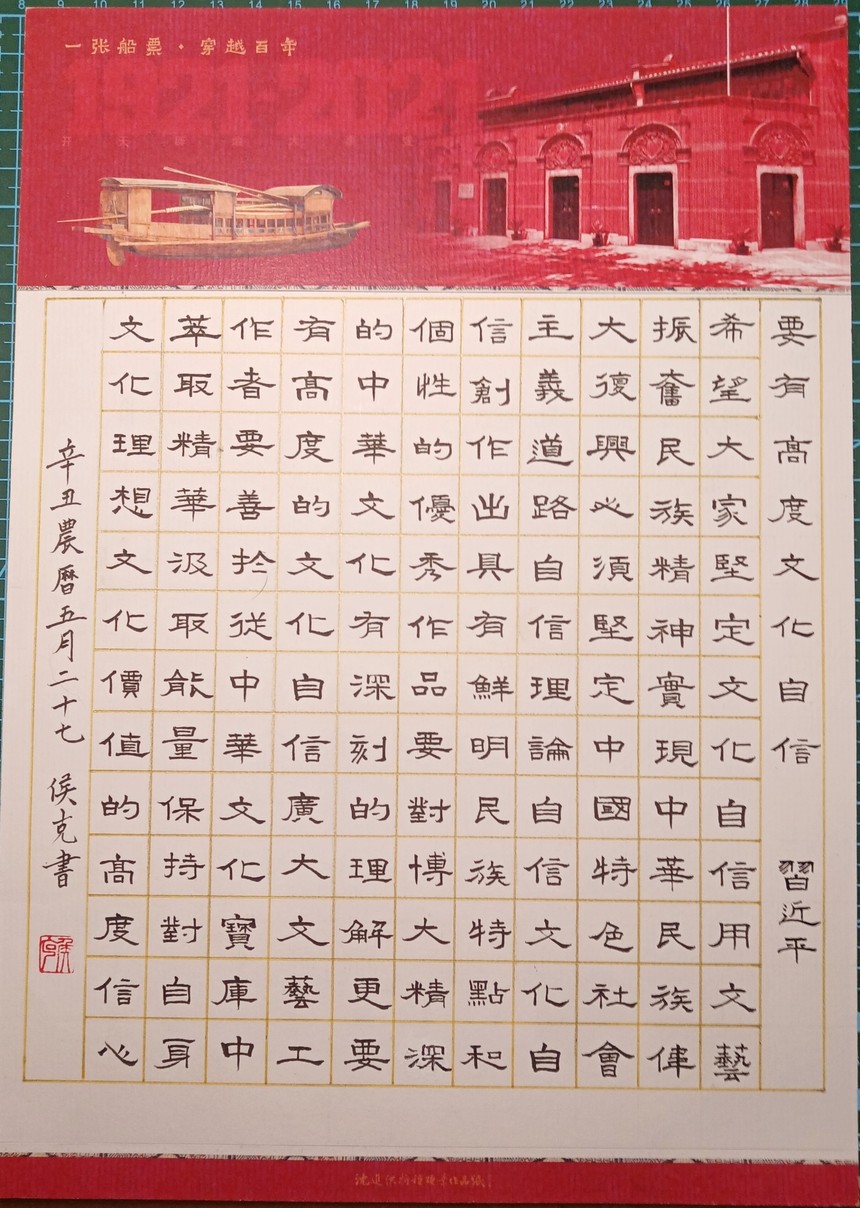 一张船票·穿越百年
1921-2021
要有高度文化自信 習近平
希望大家堅定文化自信用文藝
振奮民族精神實現中華民族偉
大復興必須堅定中國特色社會
主義道路自信理論自信文化自
信創作出具有鮮明民族特點和
個性的優秀作品要對博大精深
的中華文化有深刻的理解更要
有高度的文化自信廣大文藝工
作者要善於從中華文化寶庫中
萃取精華汲取能量保持對自身
文化理想文化價值的高度信心
辛丑農曆五月二十七 侯克書